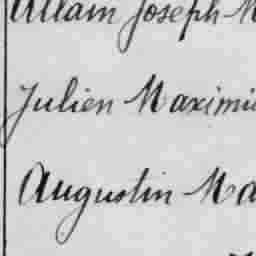 Allain Joseph M
Julien Maximi
Augustin Ma